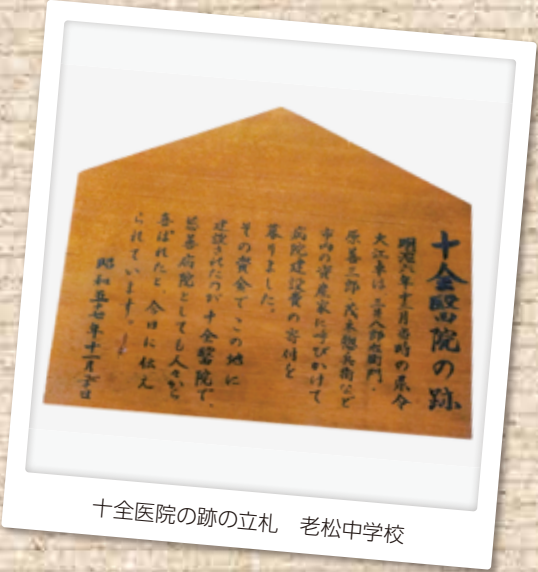 十全醫院の跡
明治六年十二月当時の県令
大江卓は、三井八郎右衛門・
原善三郎・茂木惣兵衛など
市内の資産家に呼びかけて
病院建設費の寄付を
募りました。
その資金で、この地に
建設されたのが十全醫院で、
慈善病院としても人々から
喜ばれたと、今日に伝え
られています。
昭和五十七年十二月
十全医院の跡の立札　老松中学校